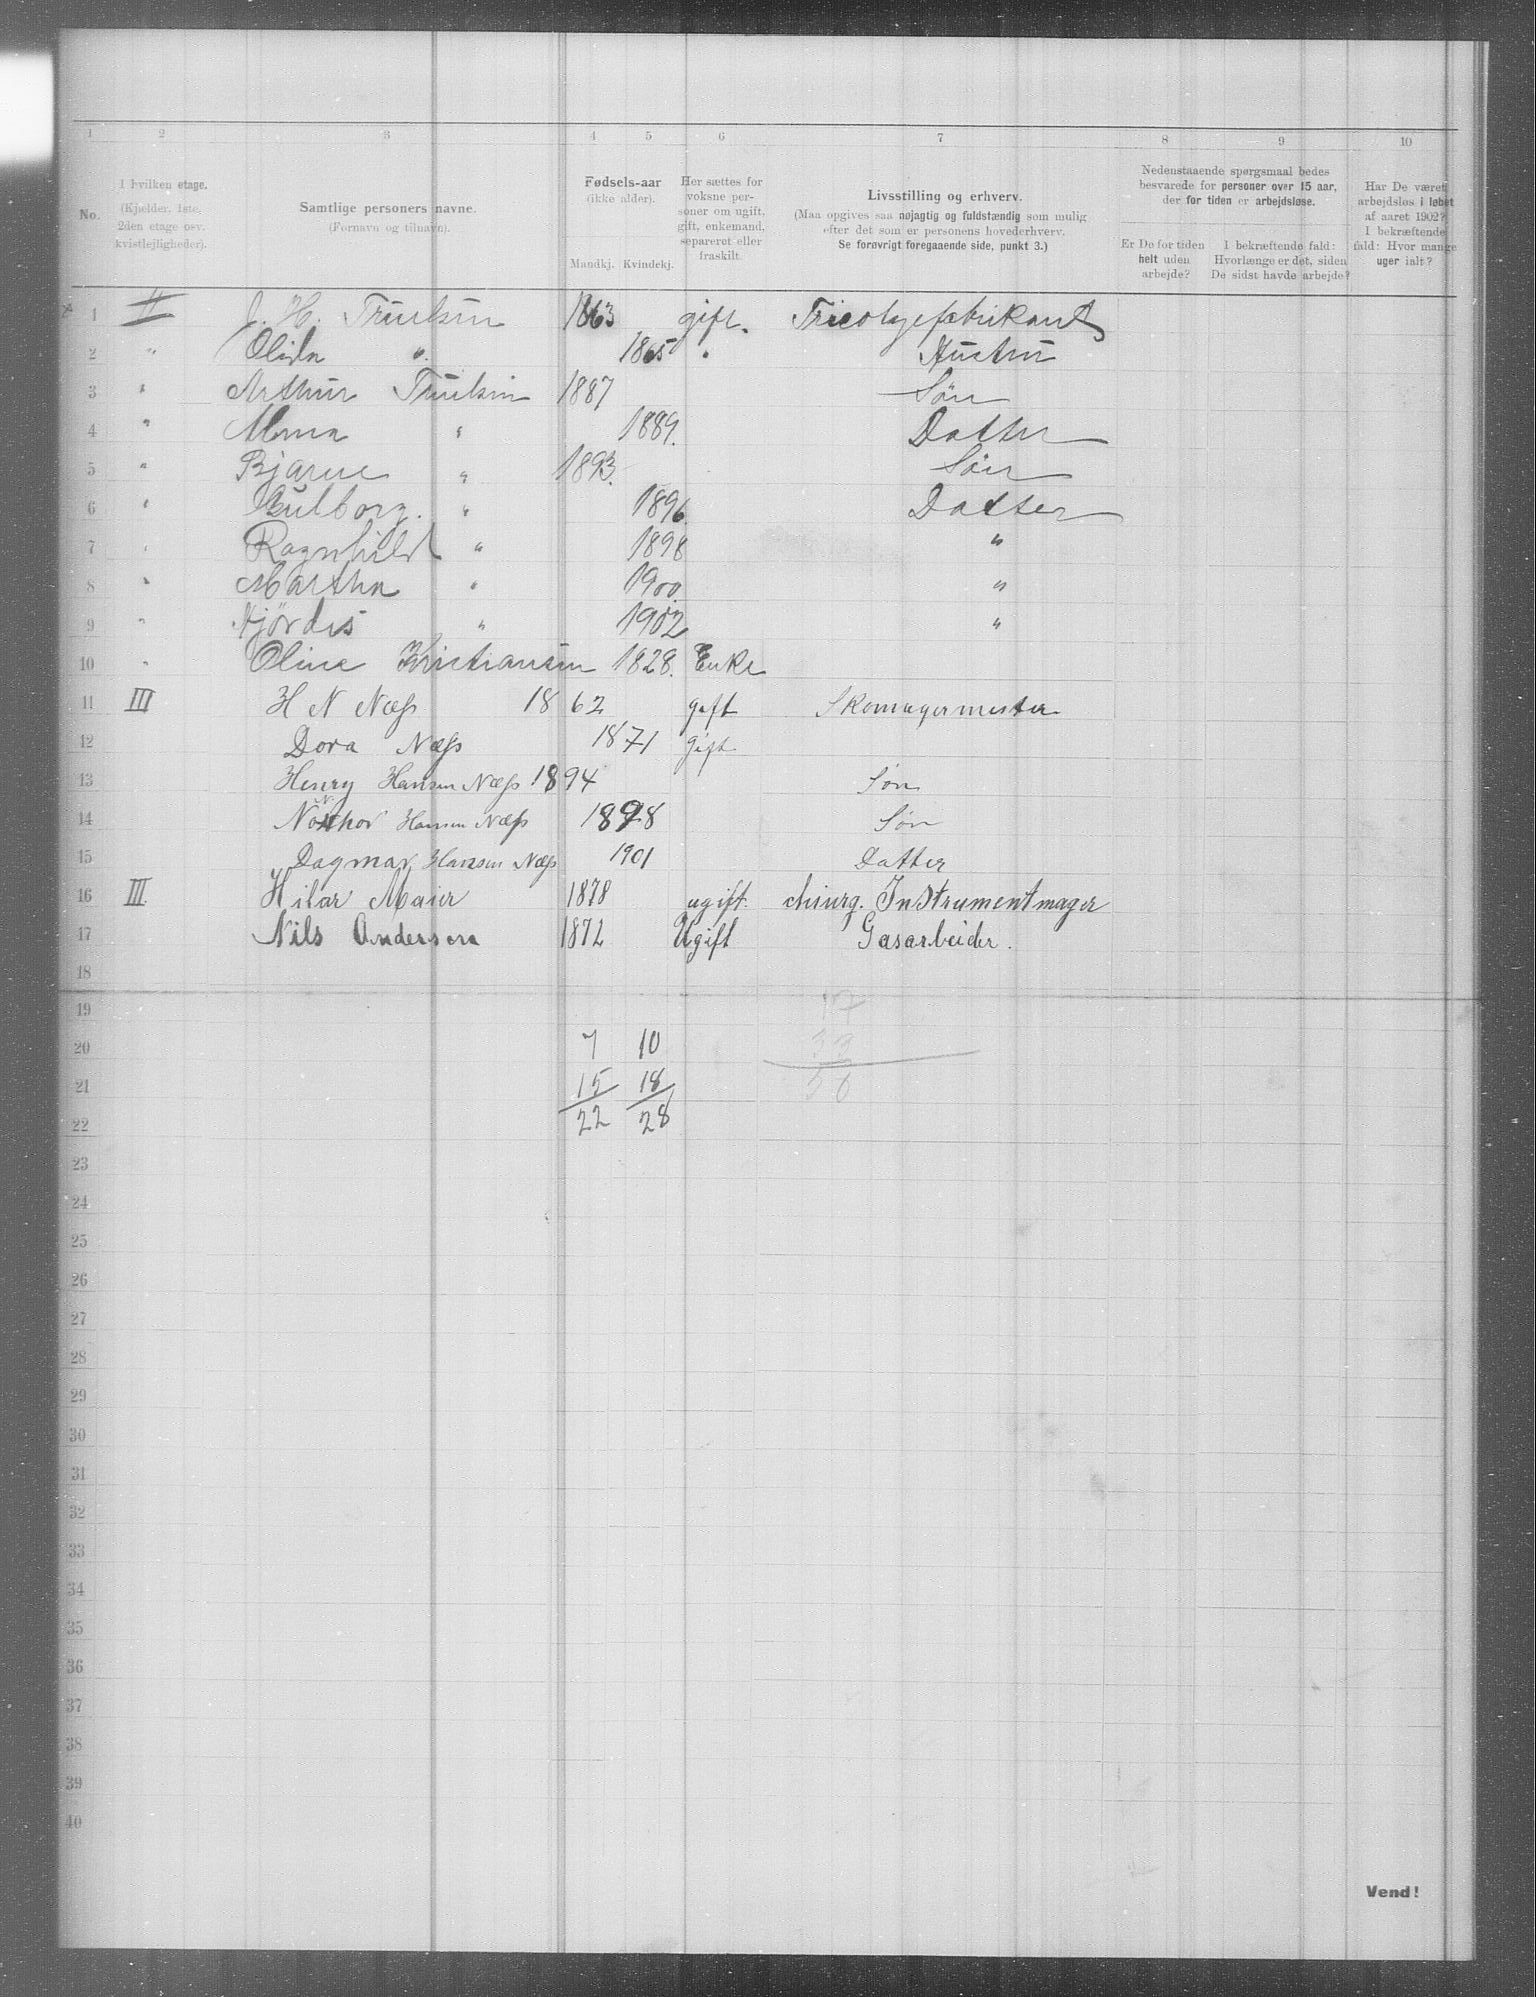 1 2 3 4 5 6 7 8 9 10
No.
I hvilken etage. (Kjælder, 1ste, 2den etage osv. kvistlejligheder).
Samtlige personers navne. (Fornavn og tilnavn).
Fødsels-aar (ikke alder).
Mandkj. Kvindekj.
Her sættes for voksne personer om ugift, gift, enkemand, separeret eller fraskilt.
Livsstilling og erhverv. (Maa opgives saa nøjagtig og fuldstændig som mulig efter det som er personens hovederhverv. Se forøvrigt foregaaende side, punkt 3.)
Nedenstaaende spørgsmaal bedes besvarede for personer over 15 aar, der for tiden er arbejdsløse.
Er De for tiden helt uden arbejde?
I bekræftende fald: Hvorlænge er det, siden De sidst havde arbejde?
Har De været arbejdsløs i løbet af aaret 1902? I bekræftende fald: Hvor mange uger ialt?
1 II J. H. Truelsen 1863 gift. Tricotagefabrikant
2 " Olida " 1865 " Hustru
3 " Arthur Truelsen 1887 Søn
4 " " 1889. Datter
5 " Bjarne " 1893. Søn
6 " Gulborg. " 1896. Datter
7 " Ragnhild " 1898 "
8 " Martha " 1900. "
9 " Hjördis " 1902 "
10 " Oline Kristiansen 1828. Enke
11 III H N Næss 1862 gift Skomagermester
12 Dora Næss 1871 gift.
13 Henry Hansen Næss 1894 Søn
14 Hansen Næss 1898 Søn
15 Dagmar Hansen Næss 1901 Datter
16 III. Hilar Maier 1878 ugift. chirurg. Instrumentmager
17 Nils Andersen 1872 Ugift Gasarbeider.
18
19 17
20 7 10 33
21 15 18 50
22 22 28
23
24
25
26
27
28
29
30
31
32
33
34
35
36
37
38
39
40
Vend!